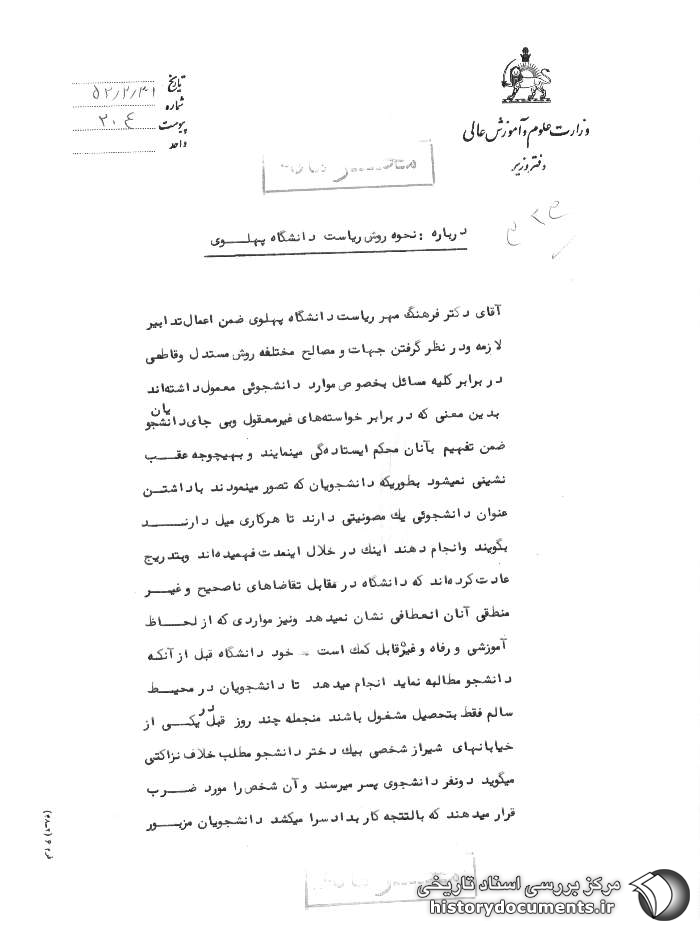 وزارت علوم و آموزش عالی
دفتر وزیر
تاریخ
شماره
پیوست
واحد
درباره : نحوه روش ریاست دانشگاه پهلــوی
آقای دکتر فرهنگ مهر ریاست دانشگاه پهلوی ضمن اعمال تدابیر
لازمه ودر نظر گرفتن جهات و مصالح مختلفه روش مستدل وقاطعی
در برابر کلیه مسائل بخصوص موارد دانشجوئی معمول داشته‌اند
بدین معنی که در برابر خواسته‌های غیرمعقول وبی جای دانشجویان
ضمن تفهیم بآنان محکم ایستاده‌گی مینمایند و بهیچوجه عقــب
نشینی نمیشود بطوریکه دانشجویان که تصور مینمودند باداشتــن
عنوان دانشجوئی یك مصونیتی دارند تا هرکاری میل دارنــــد
بگویند وانجام دهند اینك در خلال اینمدت فهمیده‌اند وبتدریج
عادت کرده‌اند که دانشگاه در مقابل تقاضاهای ناصحیح و غیــر
منطقی آنان انعطافی نشان نمیدهد ونیز مواردی که از لحــاظ
آموزشی و رفاه و غیره قابل کمك است خود دانشگاه قبل از آنکه
دانشجو مطالبه نماید انجام میدهد تا دانشجویان در محیــط
سالم فقط بتحصیل مشغول باشند منجمله چند روز قبل در یکــی از
خیابانهای شیراز شخصی بیك دختر دانشجو مطلب خلاف نزاکتی
میگوید دونفر دانشجوی پسر میرسند و آن شخص را مورد ضــرب
قرار میدهند که بالنتجه کار بدادسرا میکشد دانشجویان مزبــور
مرکز بررسی اسناد تاریخی
historydocuments.ir